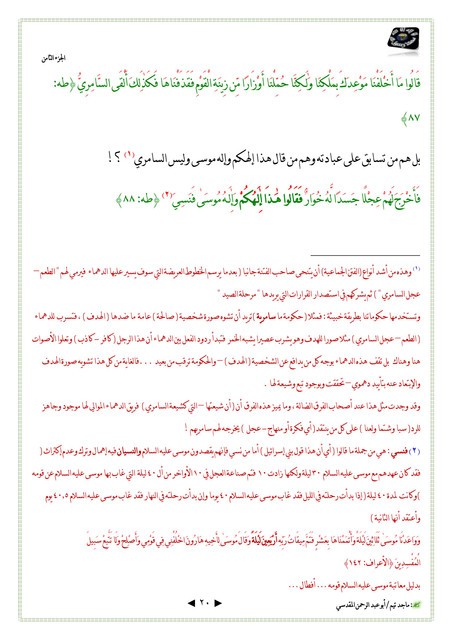 الجزء الثامن
قَالُوا مَا أَخْلَفْنَا مَوْعِدَكَ بِمَلْكِنَا وَلَٰكِنَّا حُمِّلْنَا أَوْزَارًا مِّن زِينَةِ الْقَوْمِ فَقَذَفْنَاهَا فَكَذَٰلِكَ أَلْقَى السَّامِرِيُّ ﴿طه:
٨٧﴾
بل هم من تسابق على عبادته وهم من قال هذا إلهكم وإله موسى وليس السامري (١) ؟ !
فَأَخْرَجَ لَهُمْ عِجْلًا جَسَدًا لَّهُ خُوَارٌ فَقَالُوا هَٰذَا إِلَٰهُكُمْ وَإِلَٰهُ مُوسَىٰ فَنَسِيَ (٢) ﴿طه: ٨٨﴾
(١) وهذه من أشد أنواع (الفتن الجماعية) أن يتنحى صاحب الفتنة جانبا (بعدما يرسم الخطوط العريضة التي سوف يسير عليها الدهماء فيرمي لهم " الطعم –
عجل السامري ") ثم يشركهم في استصدار القرارات التي يريدها " مرحلة الصيد "
وتستخدمها حكوماتنا بطريقة خبيثة : فمثلا (حكومة ما سامرية) تريد أن تشوه صورة شخصية (صالحة) عامة ما ضدها (الهدف) ، فتسرب للدهماء
(الطعم – عجل السامري) مثلا صور للهدف وهو يشرب عصيرا يشبه الخمر فتبدأ ردود الفعل بين الدهماء أن هذا الرجل (كافر – كاذب) وتعلوا الأصوات
هنا وهناك بل تقف هذه الدهماء بوجه كل من يدافع عن الشخصية (الهدف) – والحكومة ترقب من بعيد ... فالغاية من كل هذا تشويه صورة الهدف
والإبتعاد عنه بتأييد دهموي – تحققت وبوجود تبع وشيعة لها .
وقد وجدت مثل هذا عند أصحاب الفرق الضالة ، وما يميز هذه الفرق أن (أن شيعتها – التي كشيعة السامري) فريق الدهماء الموالي لها موجود وجاهز
للرد (سبا وشتما ولعنا) على كل من ينتقد (أي فكرة أو منهاج – عجل) يخرجه لهم سامريهم !
(٢) فنسي : هي من جملة ما قالوا (أي أن هذا قول بني إسرائيل) أما من نسي فإنهم يقصدون موسى عليه السلام والنسيان فيه إهمال وترك وعدم إكتراث (
فقد كان عهدهم مع موسى عليه السلام ٣٠ ليلة ولكنها زادت ١٠ فتم صناعة العجل في ١٠ الأواخر من آل ٤٠ ليلة التي غاب بها موسى عليه السلام عن قومه
) وكانت لمدة ٤٠ ليلة (إذا بدأت رحلته في الليل فقد غاب موسى عليه السلام ٤٠ يوما وإن بدأت رحلته في النهار فقد غاب موسى عليه السلام ٤٠,٥ يوم
وأعتقد أنها الثانية )
وَوَاعَدْنَا مُوسَىٰ ثَلَاثِينَ لَيْلَةً وَأَتْمَمْنَاهَا بِعَشْرٍ فَتَمَّ مِيقَاتُ رَبِّهِ أَرْبَعِينَ لَيْلَةً وَقَالَ مُوسَىٰ لِأَخِيهِ هَارُونَ اخْلُفْنِي فِي قَوْمِي وَأَصْلِحْ وَلَا تَتَّبِعْ سَبِيلَ
الْمُفْسِدِينَ ﴿الأعراف: ١٤٢﴾
بدليل معاتبة موسى عليه السلام قومه ... أفطال ...
: ماجد تيم / أبو عبد الرحمن المقدسي
٢٠